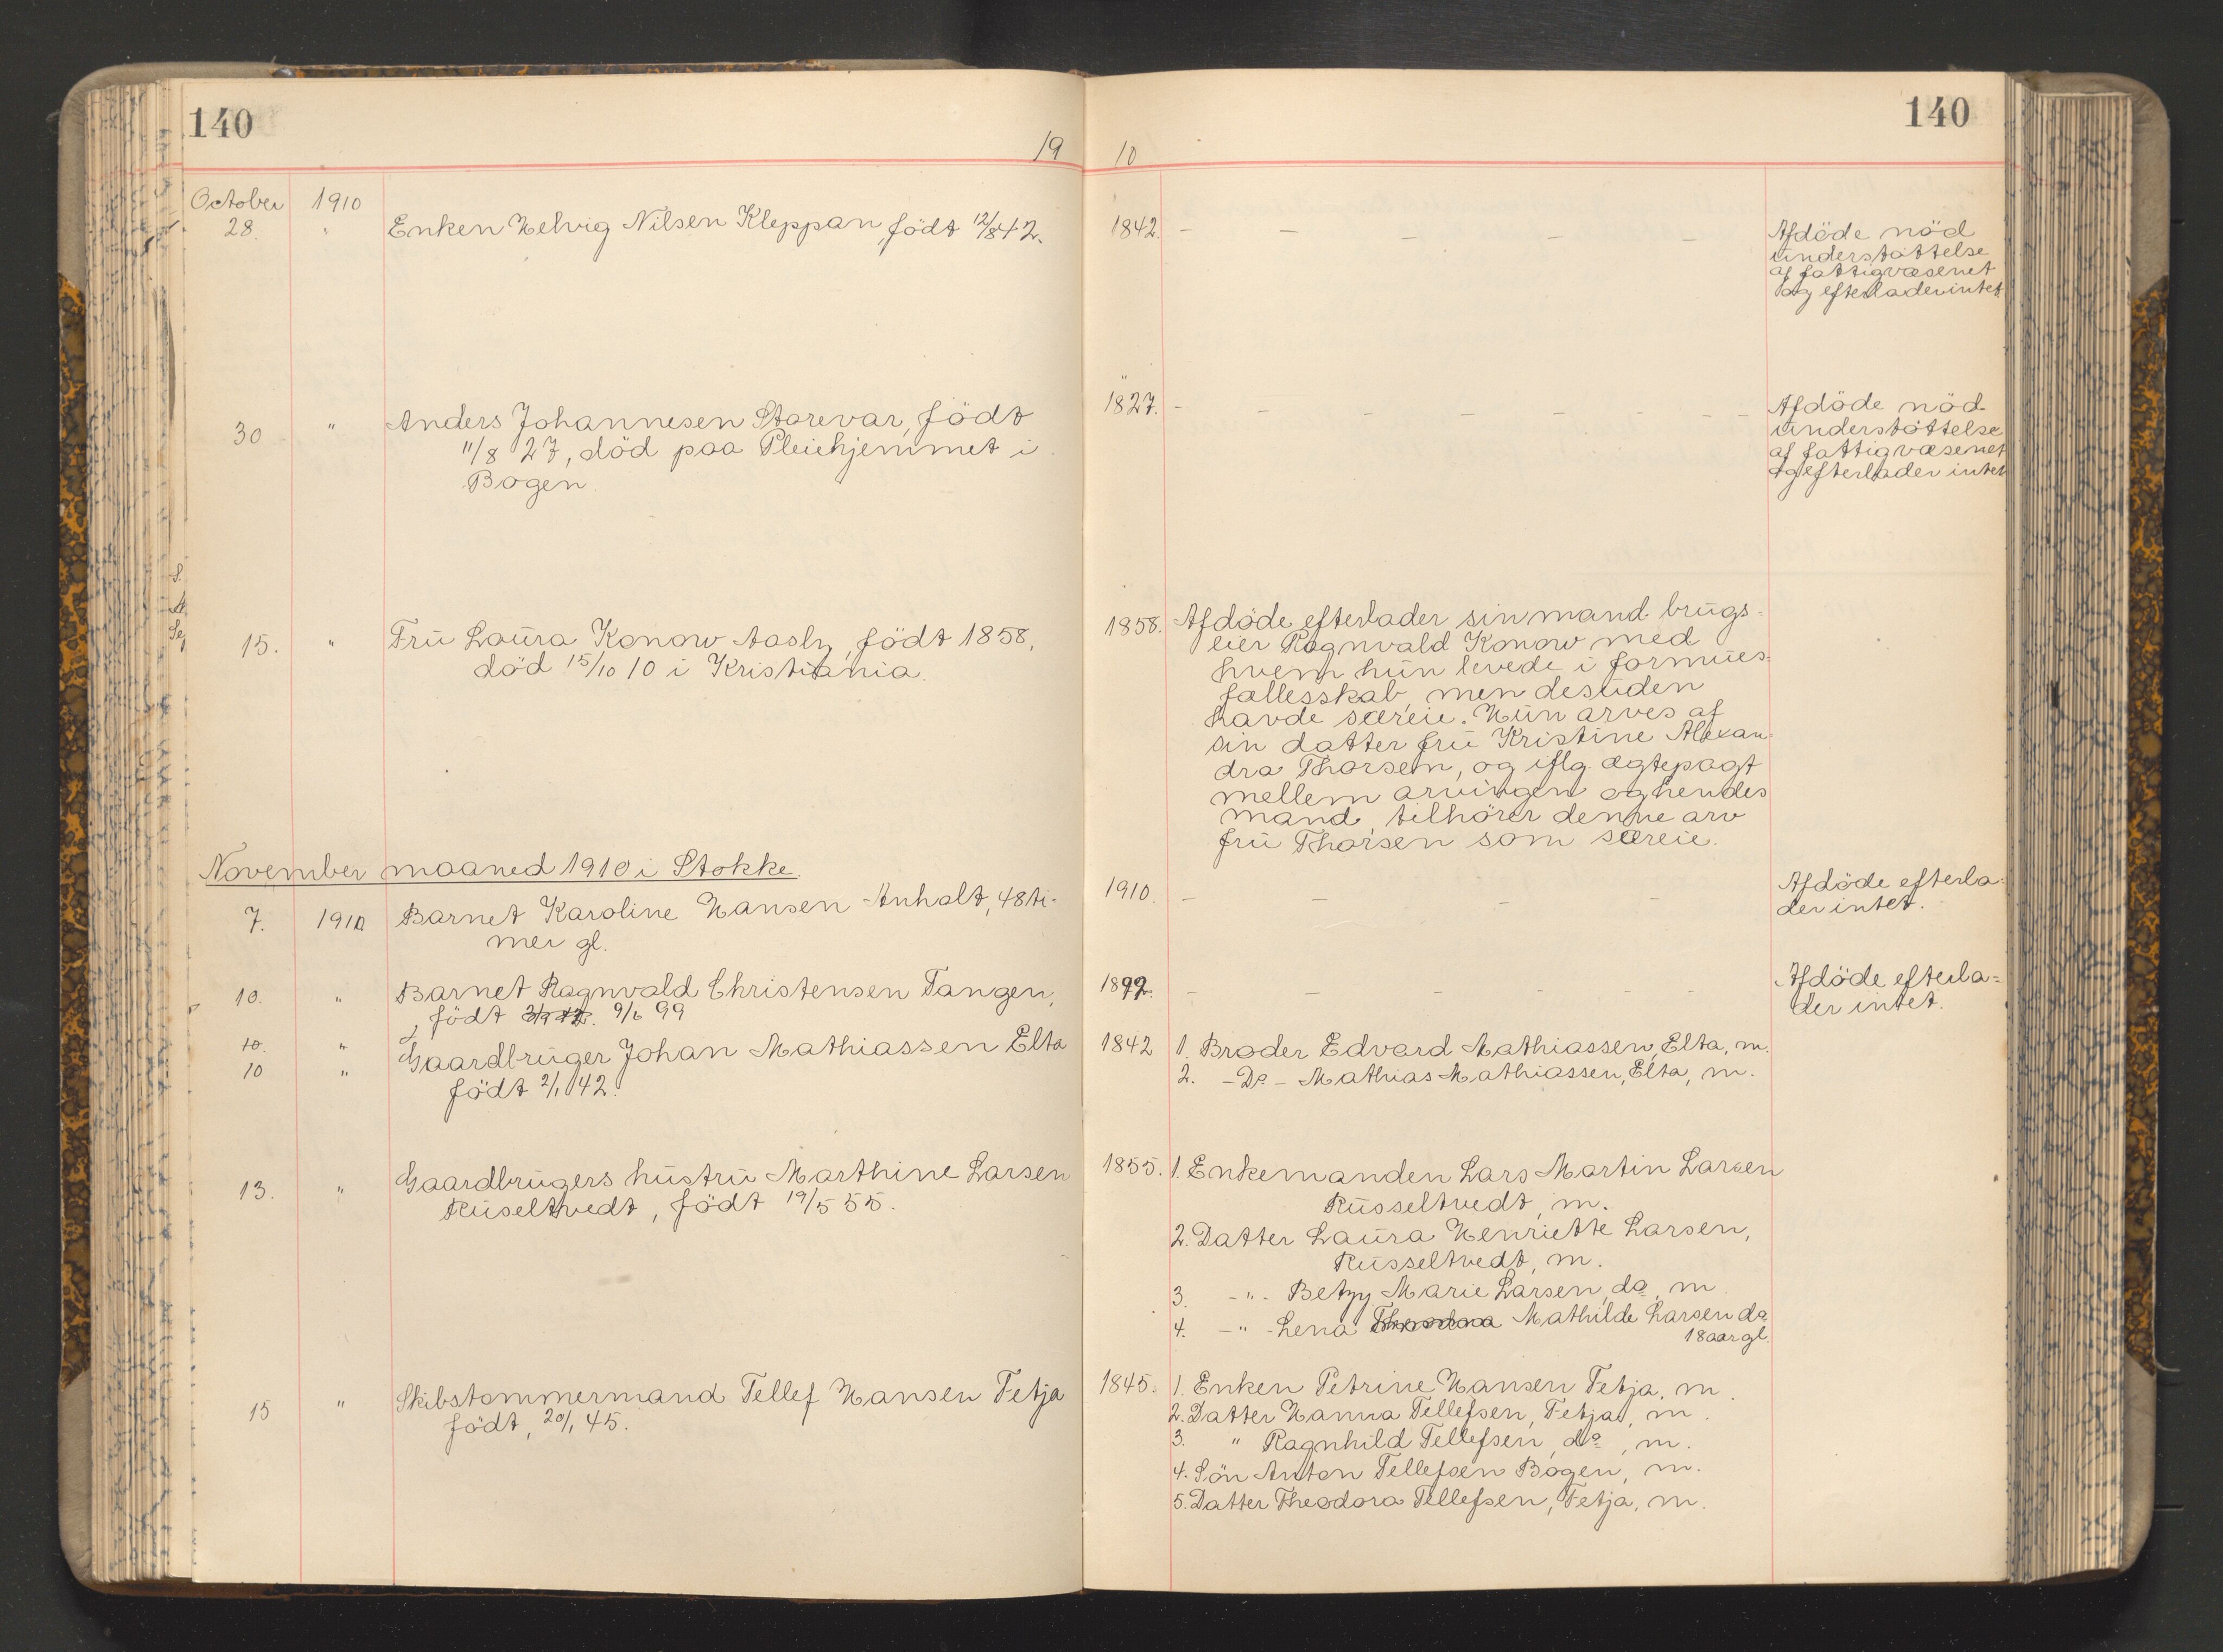 140
140
19 10
October 1910
28. " Enken Helvig Nilsen Kleppan, født 12/8 42.
1842. - - - - -
Afdöde nöd
understøttelse
af fattigvæsenet
og efterlader intet
30 " Anders Johannesen Storevar, födt
11/8 27, död paa Pleiehjemmet i
Bogen
1827. - - - - - - - -
Afdöde nöd
understöttelse
af fattigvæsenet
og efterlader intet
15. " Fru Laura Konow Aasly, födt 1858,
död 15/10 10 i Kristiania.
1858. Afdöde efterlader sin mand brugs=
eier Ragnvald Konow med
hvem hun levede i formues=
fællesskab, men desuden
havde særeie. Hun arves af
sin datter fru Kristine Alexan=
dra Thorsen, og iflg. ægtepagt
mellem arvingen og hendes
mand, tilhörer denne arv
fru Thorsen som særeie.
November maaned 1910 i Stokke.
7. 1910 Barnet Karoline Hansen Anholt, 48 ti-
mer gl.
1910. - - - -
Afdöde efterla=
der intet.
10. " Barnet Ragnvald Christensen Tangen,
födt 9/6 99
1899. - - - - - -
Afdöde efterla=
der intet.
10. "
10 " Gaardbruger Johan Mathiassen Elta
födt 2/1 42.
1842 1. Broder Edvard Mathiassen, Elta, m.
2. - Do - Mathias Mathiassen, Elta, m.
13. " Gaardbrugers hustru Marthine Larsen
Ruseltvedt, födt 19/5 55.
1855. 1. Enkemanden Lars Martin Larsen
Russeltvedt, m.
2. Datter Laura Henriette Larsen,
Russeltvedt, m.
3. - " - Betzy Marie Larsen, do, m
4. - " - Lena Theodora Mathilde Larsen do
18 aar gl.
15 " Skibstømmermand Tellef Hansen Fetja
födt, 20/1 45.
1845. 1. Enken Petrine Hansen Fetja, m.
2. Datter Hanna Tellefsen, Fetja, m.
3. " Ragnhild Tellefsen, do, m.
4. Sön Anton Tellefsen Bogen, m.
5. Datter Theodora Tellefsen, Fetja, m.